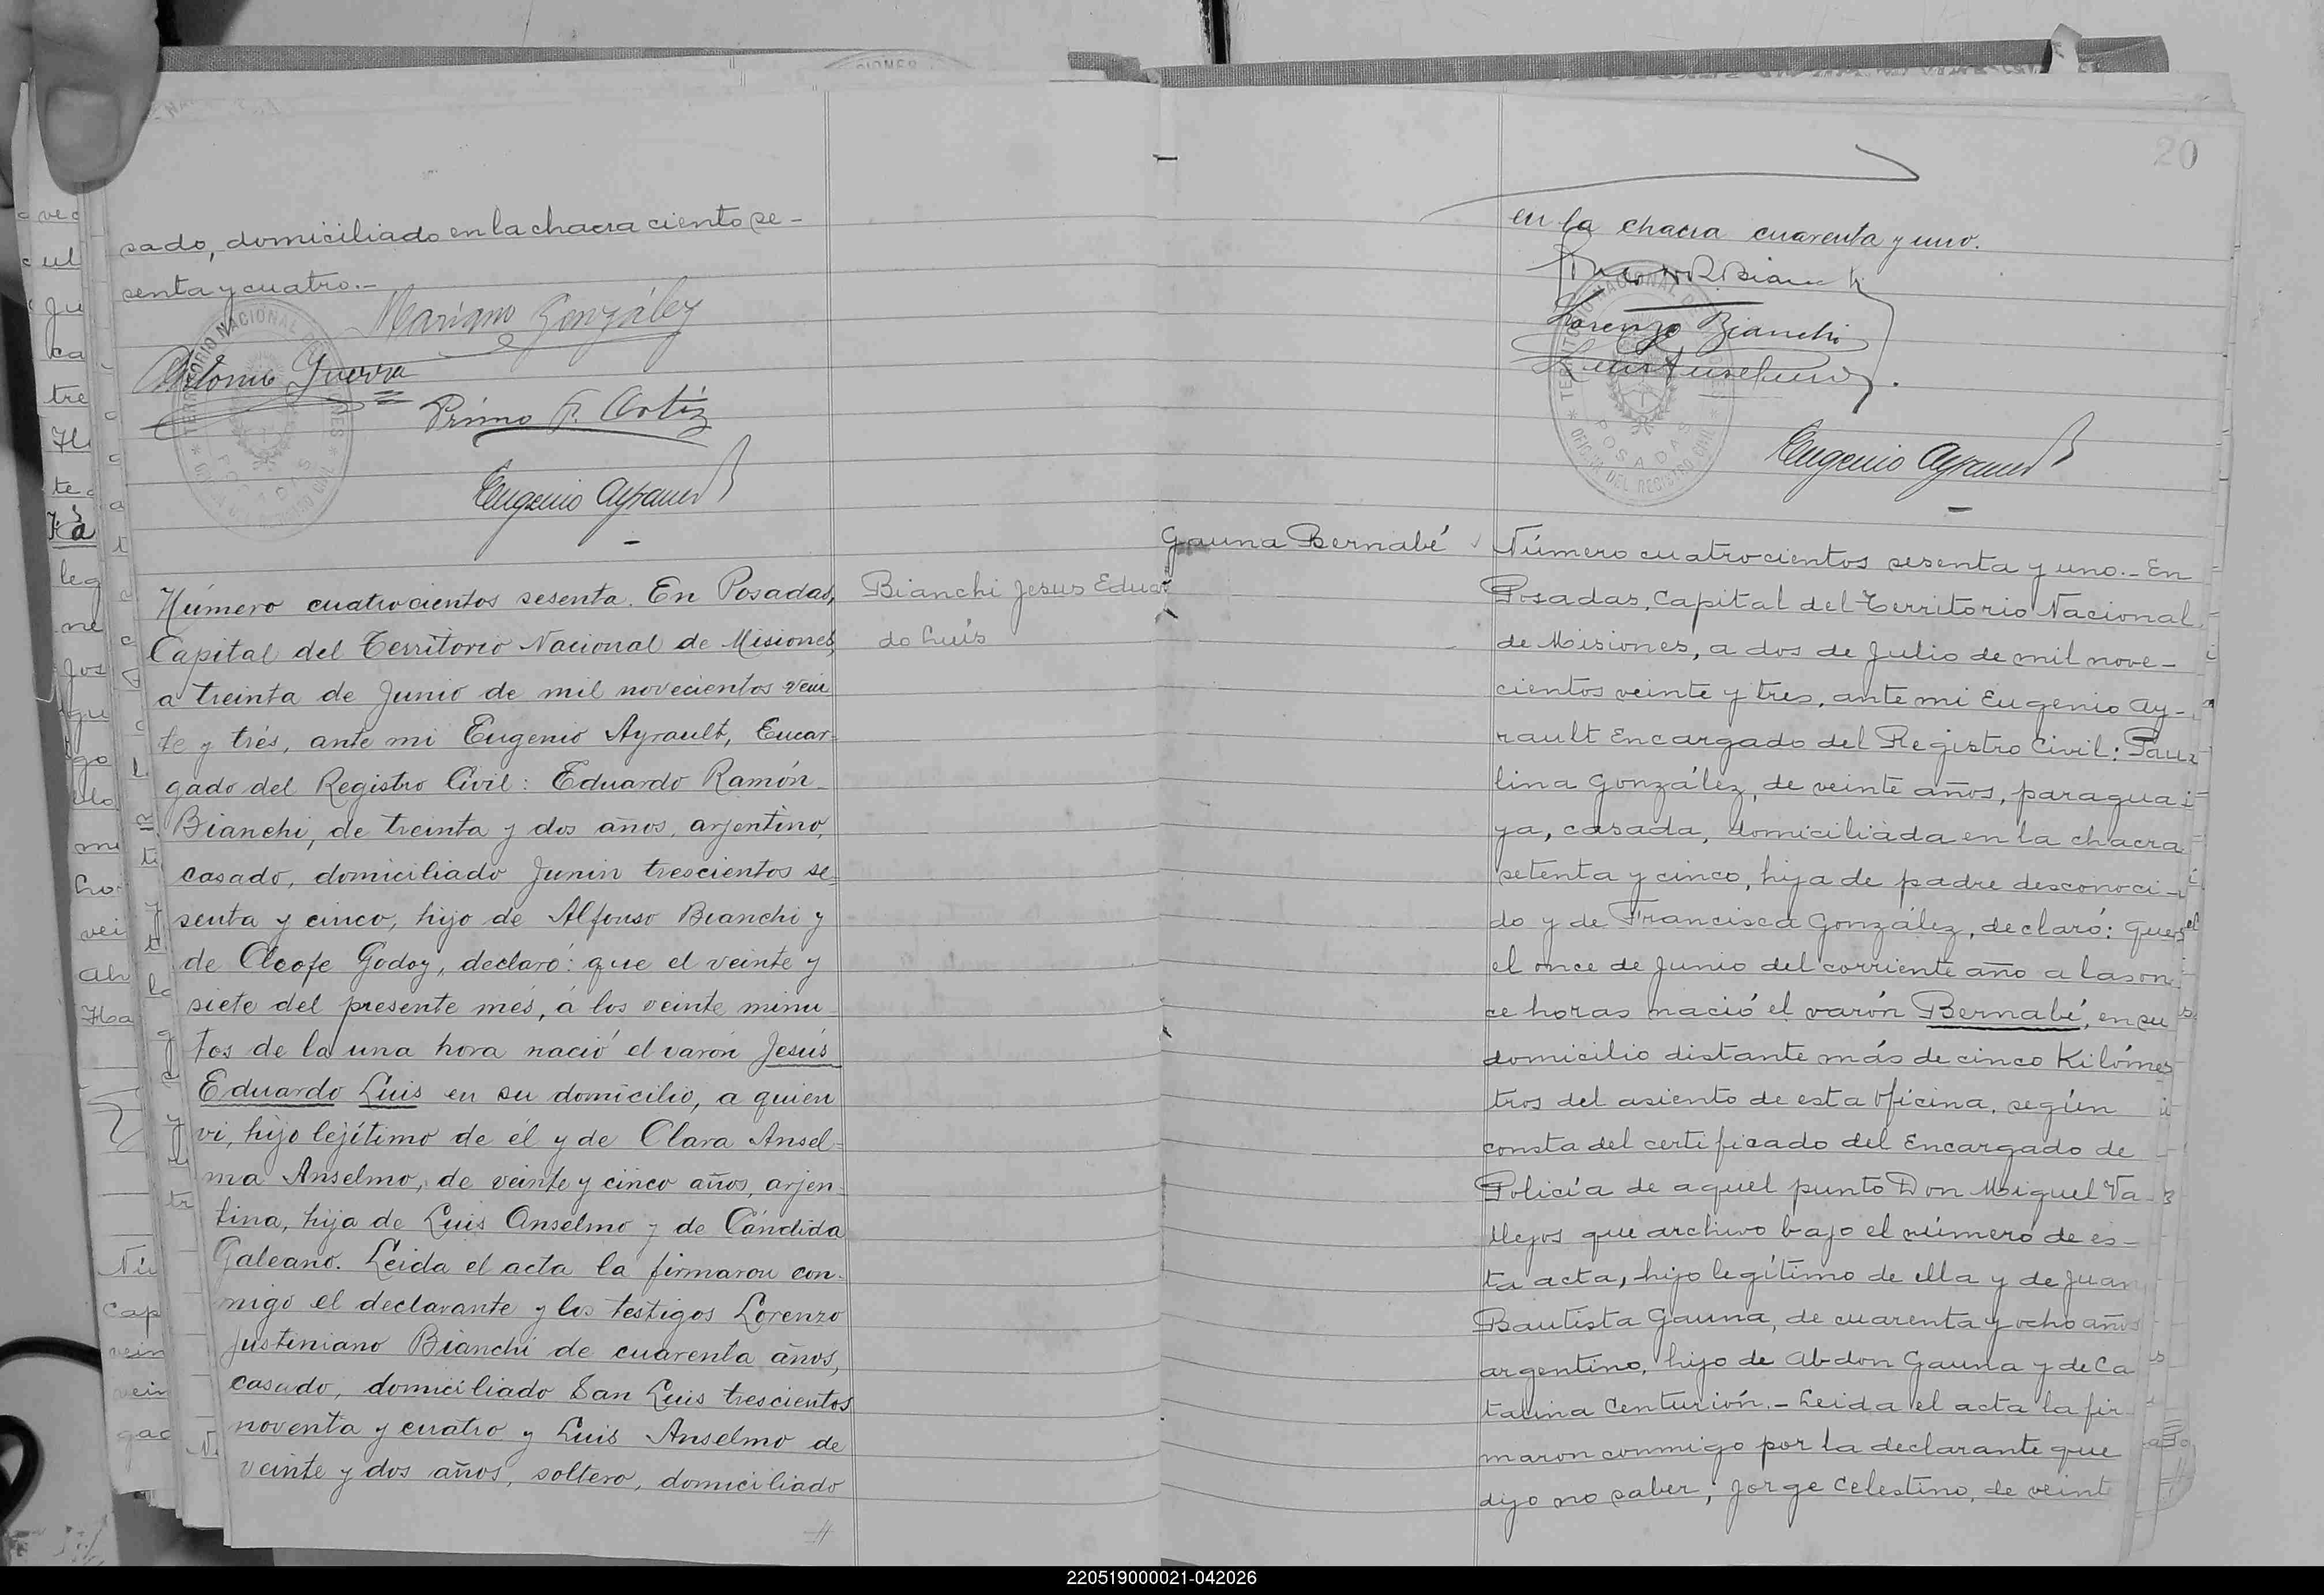 sado, domiciliado en la chacra ciento se-
senta y cuatro.-
Mariano González
Antonio Guerra
Primo F. Ortiz
Eugenio Ayrault
Número cuatrocientos sesenta. En Posadas,
Capital del Territorio Nacional de Misiones,
a treinta de Junio de mil novecientos vein
te y trés, ante mi Eugenio Ayrault, Encar-
gado del Registro Civil: Eduardo Ramón
Bianchi, de treinta y dos años, arjentino,
casado, domiciliado Junin trescientos se-
senta y cinco, hijo de Alfonso Bianchi y
de Cleofe Godoy, declaró: que el veinte y
siete del presente més, á los veinte minu-
tos de la una hora nació el varón Jesús
Eduardo Luis en su domicilio, a quien
vi, hijo lejítimo de él y de Clara Ansel-
ma Anselmo, de veinte y cinco años, arjen-
tina, hija de Luis Anselmo y de Cándida
Galeano. Leida el acta la firmaron con-
migo el declarante y los testigos Lorenzo
Justiniano Bianchi de cuarenta años,
casado, domiciliado San Luis trescientos
noventa y cuatro y Luis Anselmo de
veinte y dos años, soltero, domiciliado
Bianchi Jesus Eduar
do Luis
20
en la chacra cuarenta y uno.
R. Bianchi
Lorenzo Bianchi
Luis Anselmo
TERRITORIO NACIONAL DE MISIONES
POSADAS
OFICINA DEL REGISTRO CIVIL
Eugenio Ayrault
Gauna Bernabé
Número cuatrocientos sesenta y uno.- En
Posadas, Capital del Territorio Nacional
de Misiones, a dos de Julio de mil nove-
cientos veinte y tres, ante mi Eugenio Ay-
rault Encargado del Registro Civil: Pau-
lina González, de veinte años, paragua-
ya, casada, domiciliada en la chacra
setenta y cinco, hija de padre desconoci-
do y de Francisca González, declaró: que
el once de Junio del corriente año a las on
ce horas nació el varón Bernabé, en su
domicilio distante más de cinco Kilóme
tros del asiento de esta Oficina, según
consta del certificado del Encargado de
Policía de aquel punto Don Miguel Va-
llejos que archivo bajo el número de es-
ta acta, hijo legítimo de ella y de Juan
Bautista Gauna, de cuarenta y ocho años
argentino, hijo de Abdon Gauna y de Ca
talina Centurión.- Leida el acta la fir
maron conmigo por la declarante que
dijo no saber; Jorge Celestino, de veint
220519000021-042026